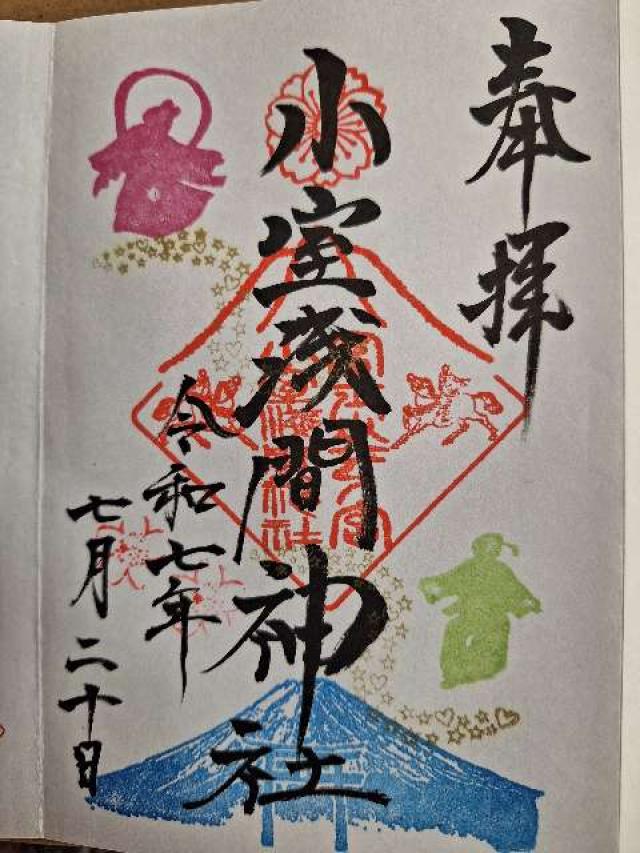 奉拝
小室浅間神社
令和七年
七月二十日